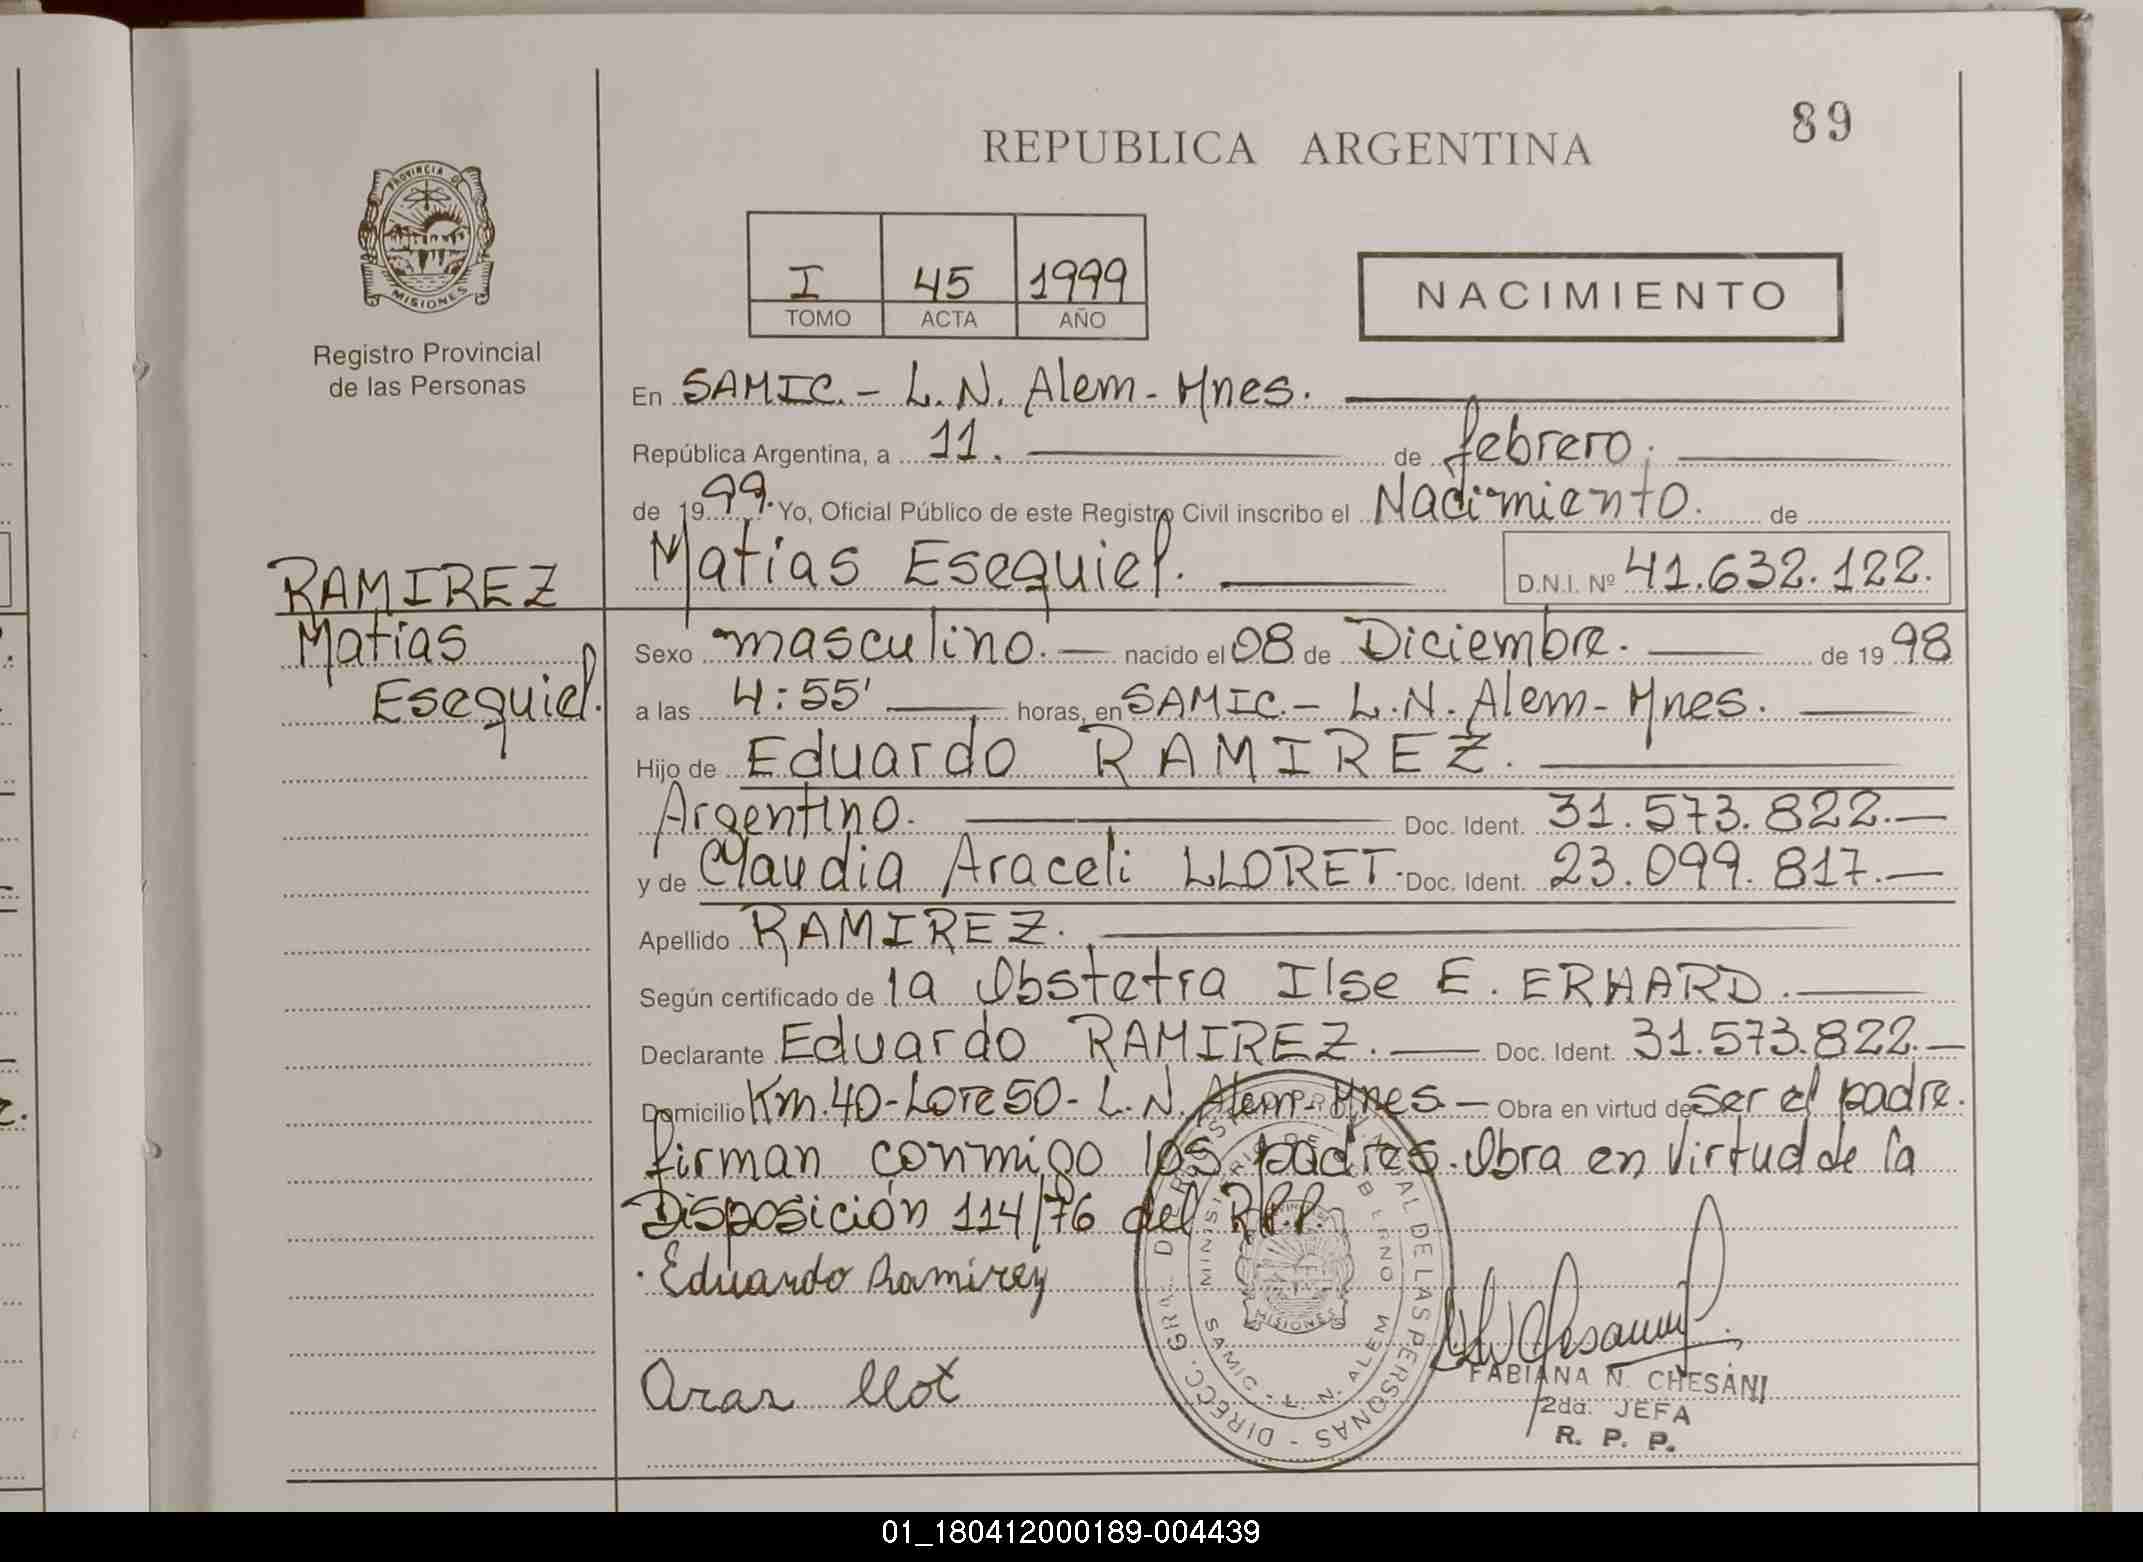 89
REPUBLICA ARGENTINA
PROVINCIA DE
MISIONES
Registro Provincial
de las Personas
I 45 1999
TOMO ACTA AÑO
NACIMIENTO
En SAMIC.- L. N. Alem - Mnes.
República Argentina, a 11. de febrero.
de 1999. Yo, Oficial Público de este Registro Civil inscribo el Nacimiento. de
Matías Esequiel. D.N.I. Nº 41.632.122.
RAMIREZ
Matías
Esequiel.
Sexo masculino. nacido el 08 de Diciembre. de 1998
a las 4:55' horas, en SAMIC.- L. N. Alem - Mnes.
Hijo de Eduardo RAMIREZ.
Argentino. Doc. Ident. 31.573.822.-
y de Claudia Araceli LLORET. Doc. Ident. 23.099.817.-
Apellido RAMIREZ.
Según certificado de la Obstetra Ilse E. ERHARD.
Declarante Eduardo RAMIREZ. Doc. Ident. 31.573.822.-
Domicilio Km. 40 - Lote 50 - L. N. Alem - Mnes - Obra en virtud de ser el padre.
firman conmigo los padres. Obra en virtud de la
Disposición 114/76 del R.P.P.
Eduardo Ramirez
MISIONES
SAMIC - L. N. ALEM
FABIANA N. CHESANI
2da. JEFA
R. P. P.
01_180412000189-004439